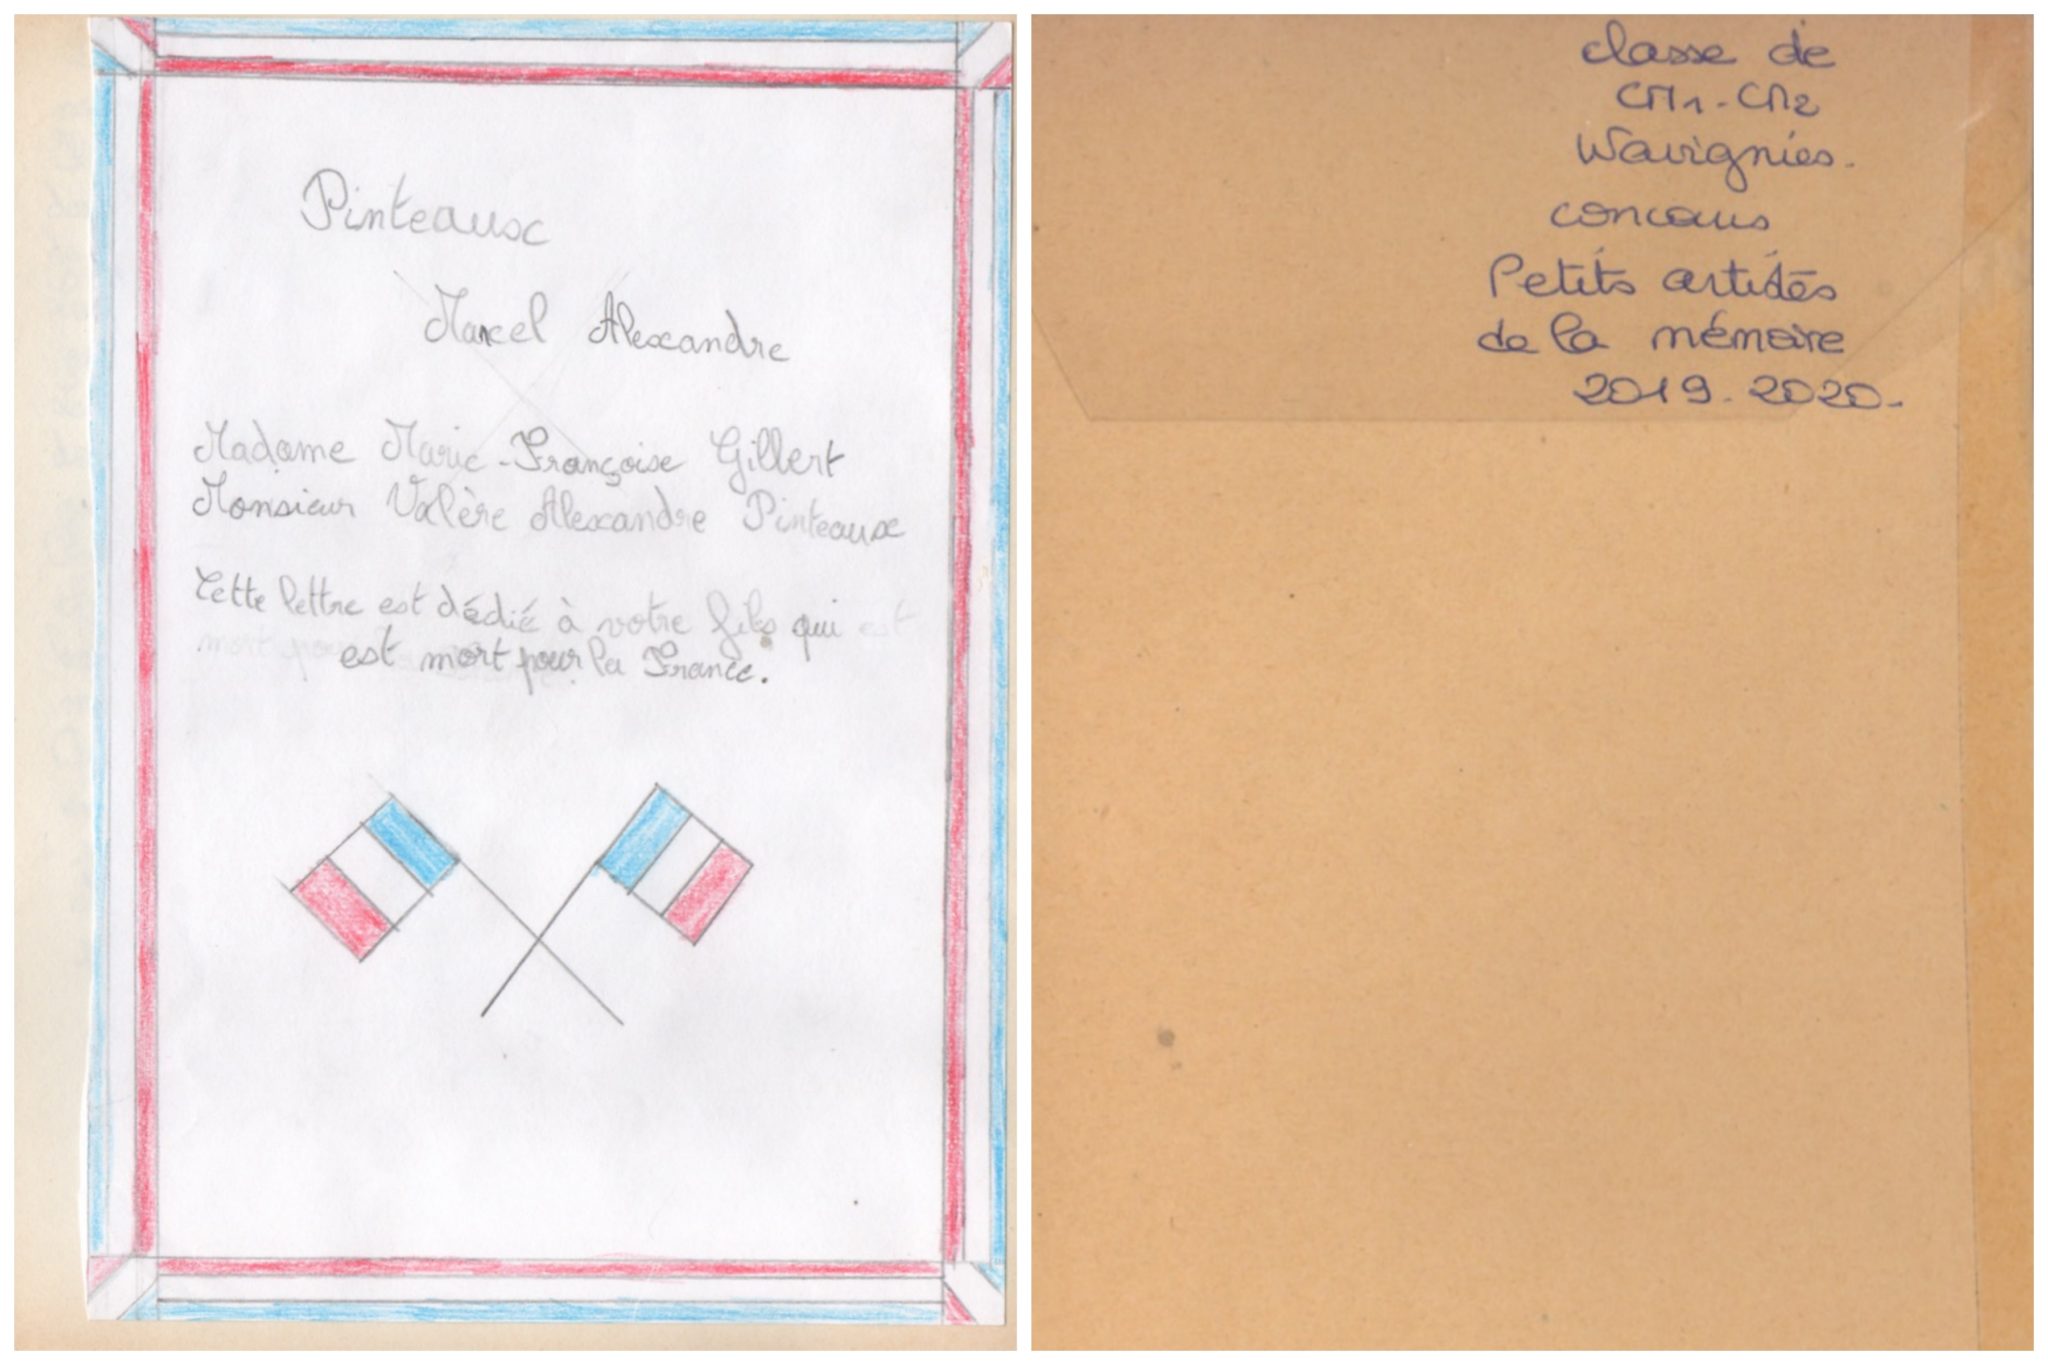 Pinteaux
Marcel Alexandre
Madame Marie-Françoise Gillert
Monsieur Valère Alexandre Pinteaux
Cette lettre est dédié à votre fils qui est
mort pour
est mort pour la France.
classe de
CM1-CM2
Wavignies.
concours
Petits artistes
de la mémoire
2019-2020-